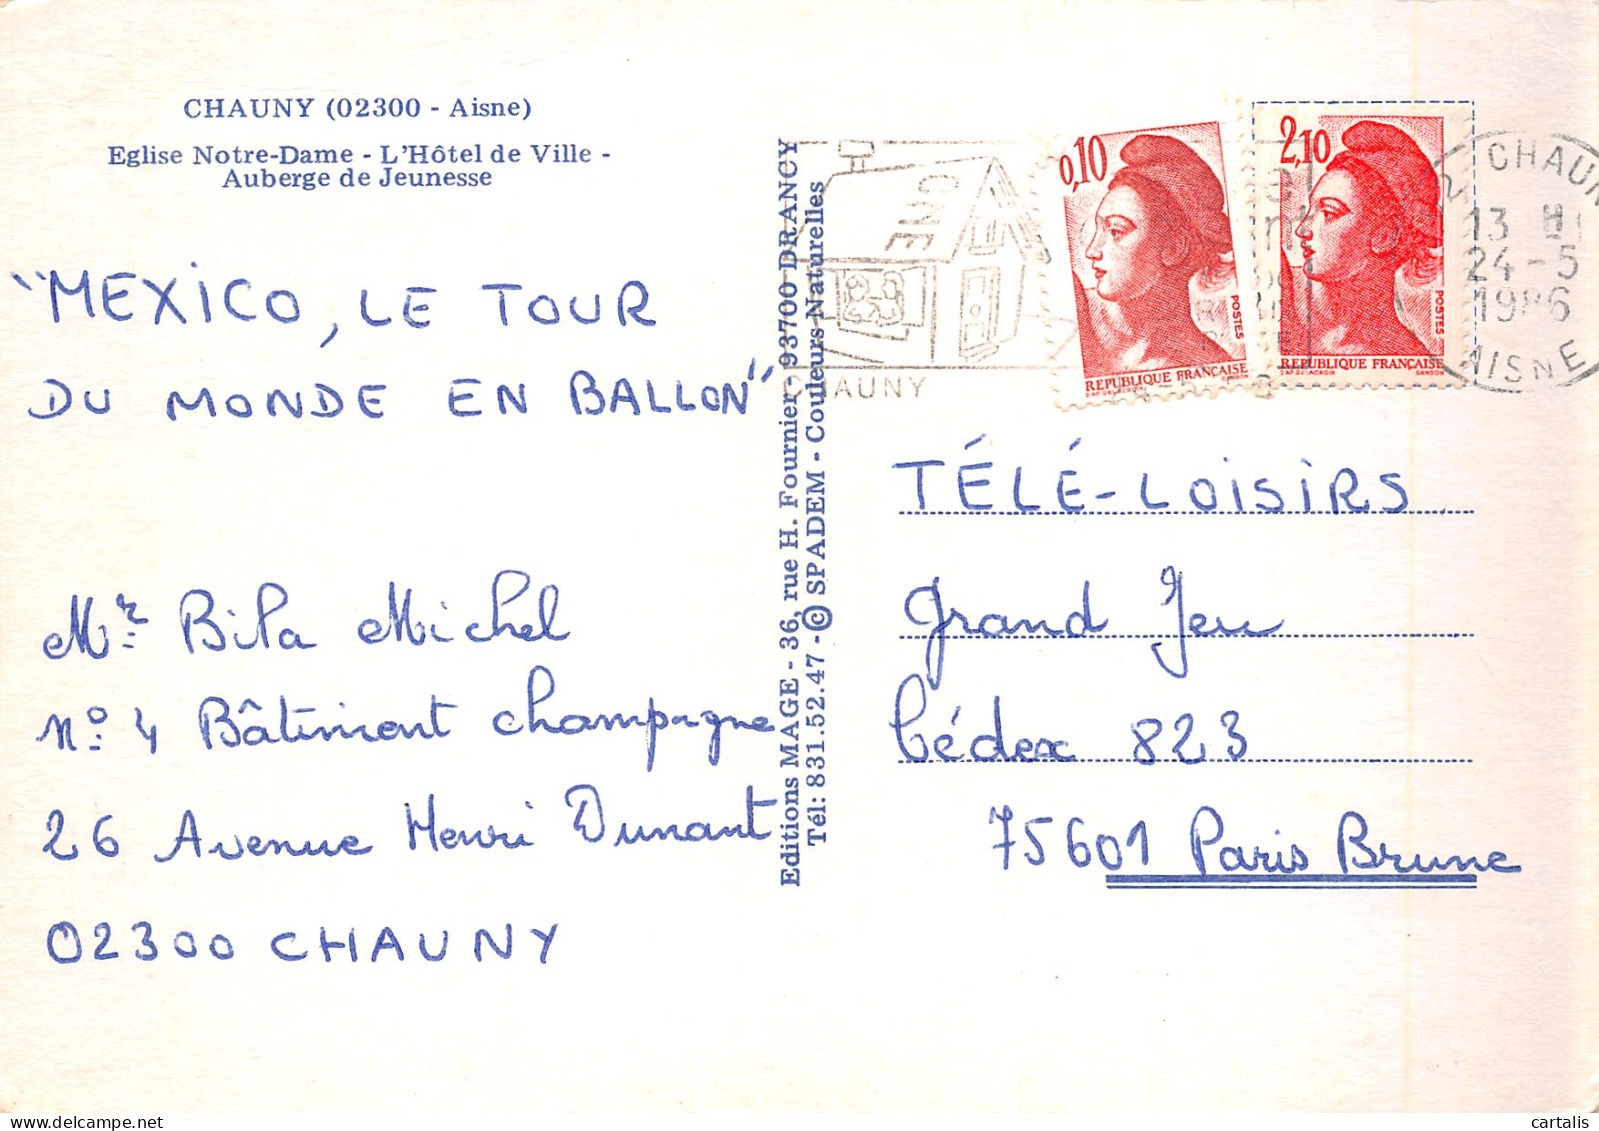 CHAUNY (02300 - Aisne)
Eglise Notre-Dame - L'Hôtel de Ville -
Auberge de Jeunesse
"MEXICO, LE TOUR
DU MONDE EN BALLON"
Mr Bila Michel
N° 4 Bâtiment champagne
26 Avenue Henri Dunant
02300 CHAUNY
Editions MAGE - 36, rue H. Fournier - 93700 DRANCY
Tél: 831.52.47 - © SPADEM - Couleurs Naturelles
CNE
CHAUNY
0,10
POSTES
REPUBLIQUE FRANÇAISE
2,10
POSTES
REPUBLIQUE FRANÇAISE
GANDON
CHAUNY
13 H
24-5
1986
AISNE
TÉLÉ-LOISIRS
Grand Jeu
Cédex 823
75601 Paris Brune
cartalis